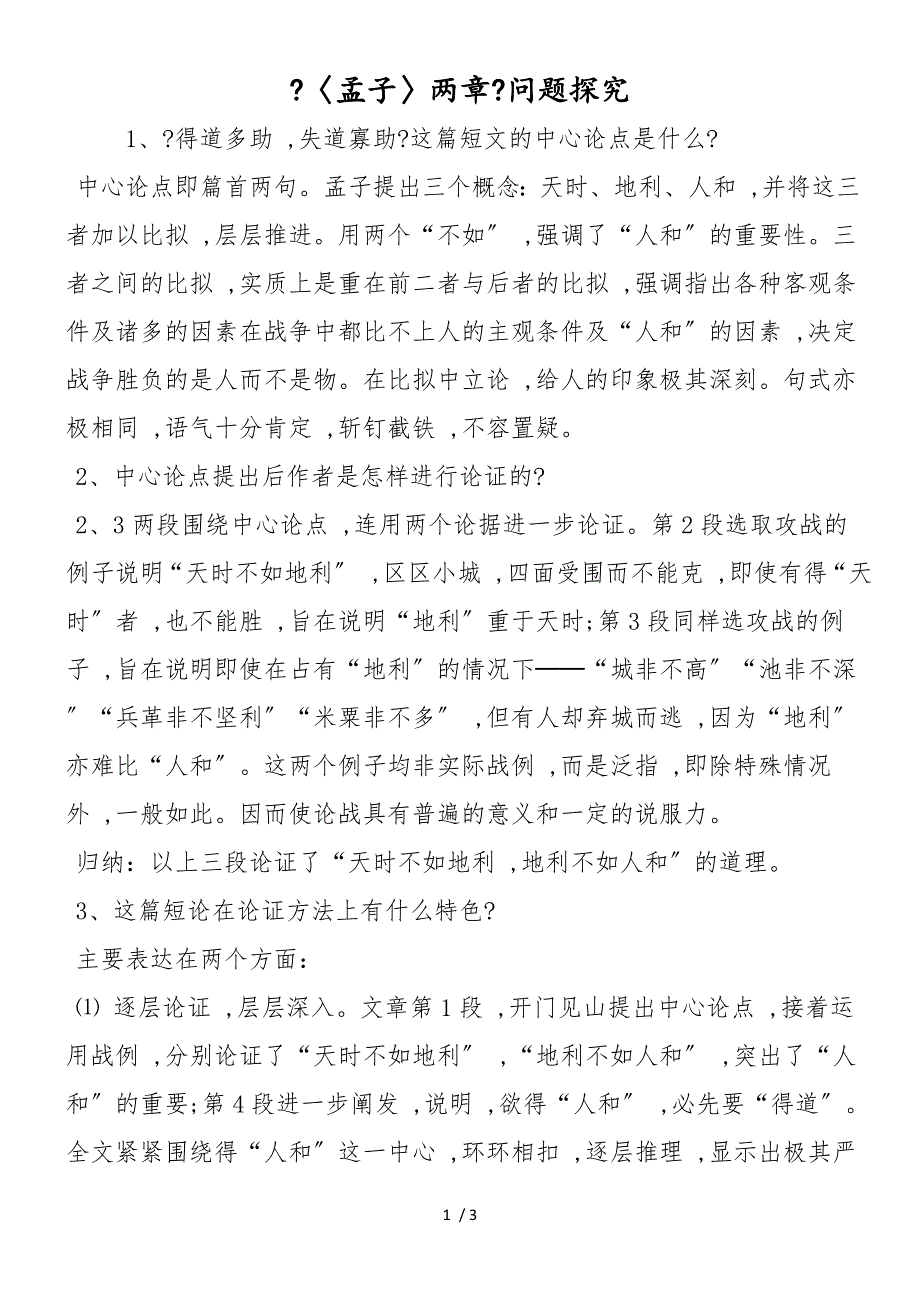 ?〈孟子〉两章?问题探究
1、?得道多助 ,失道寡助?这篇短文的中心论点是什么?
中心论点即篇首两句。孟子提出三个概念: 天时、地利、人和 ,并将这三
者加以比拟 ,层层推进。用两个“不如〞 ,强调了“人和〞的重要性。三
者之间的比拟 ,实质上是重在前二者与后者的比拟 ,强调指出各种客观条
件及诸多的因素在战争中都比不上人的主观条件及“人和〞的因素 ,决定
战争胜负的是人而不是物。在比拟中立论 ,给人的印象极其深刻。句式亦
极相同 ,语气十分肯定 ,斩钉截铁 ,不容置疑。
2、中心论点提出后作者是怎样进行论证的?
2、3 两段围绕中心论点 ,连用两个论据进一步论证。第 2 段选取攻战的
例子说明“天时不如地利〞 ,区区小城 ,四面受围而不能克 ,即使有得“天
时〞者 ,也不能胜 ,旨在说明“地利〞重于天时;第 3 段同样选攻战的例
子 ,旨在说明即使在占有“地利〞的情况下──“城非不高〞“池非不深
〞“兵革非不坚利〞“米粟非不多〞 ,但有人却弃城而逃 ,因为“地利〞
亦难比“人和〞。这两个例子均非实际战例 ,而是泛指 ,即除特殊情况
外 ,一般如此。因而使论战具有普遍的意义和一定的说服力。
归纳: 以上三段论证了“天时不如地利 ,地利不如人和〞的道理。
3、这篇短论在论证方法上有什么特色?
主要表达在两个方面:
⑴ 逐层论证 ,层层深入。文章第 1 段 ,开门见山提出中心论点 ,接着运
用战例 ,分别论证了“天时不如地利〞 ,“地利不如人和〞 ,突出了“人
和〞的重要;第 4 段进一步阐发 ,说明 ,欲得“人和〞 ,必先要“得道〞。
全文紧紧围绕得“人和〞这一中心 ,环环相扣 ,逐层推理 ,显示出极其严
1 / 3